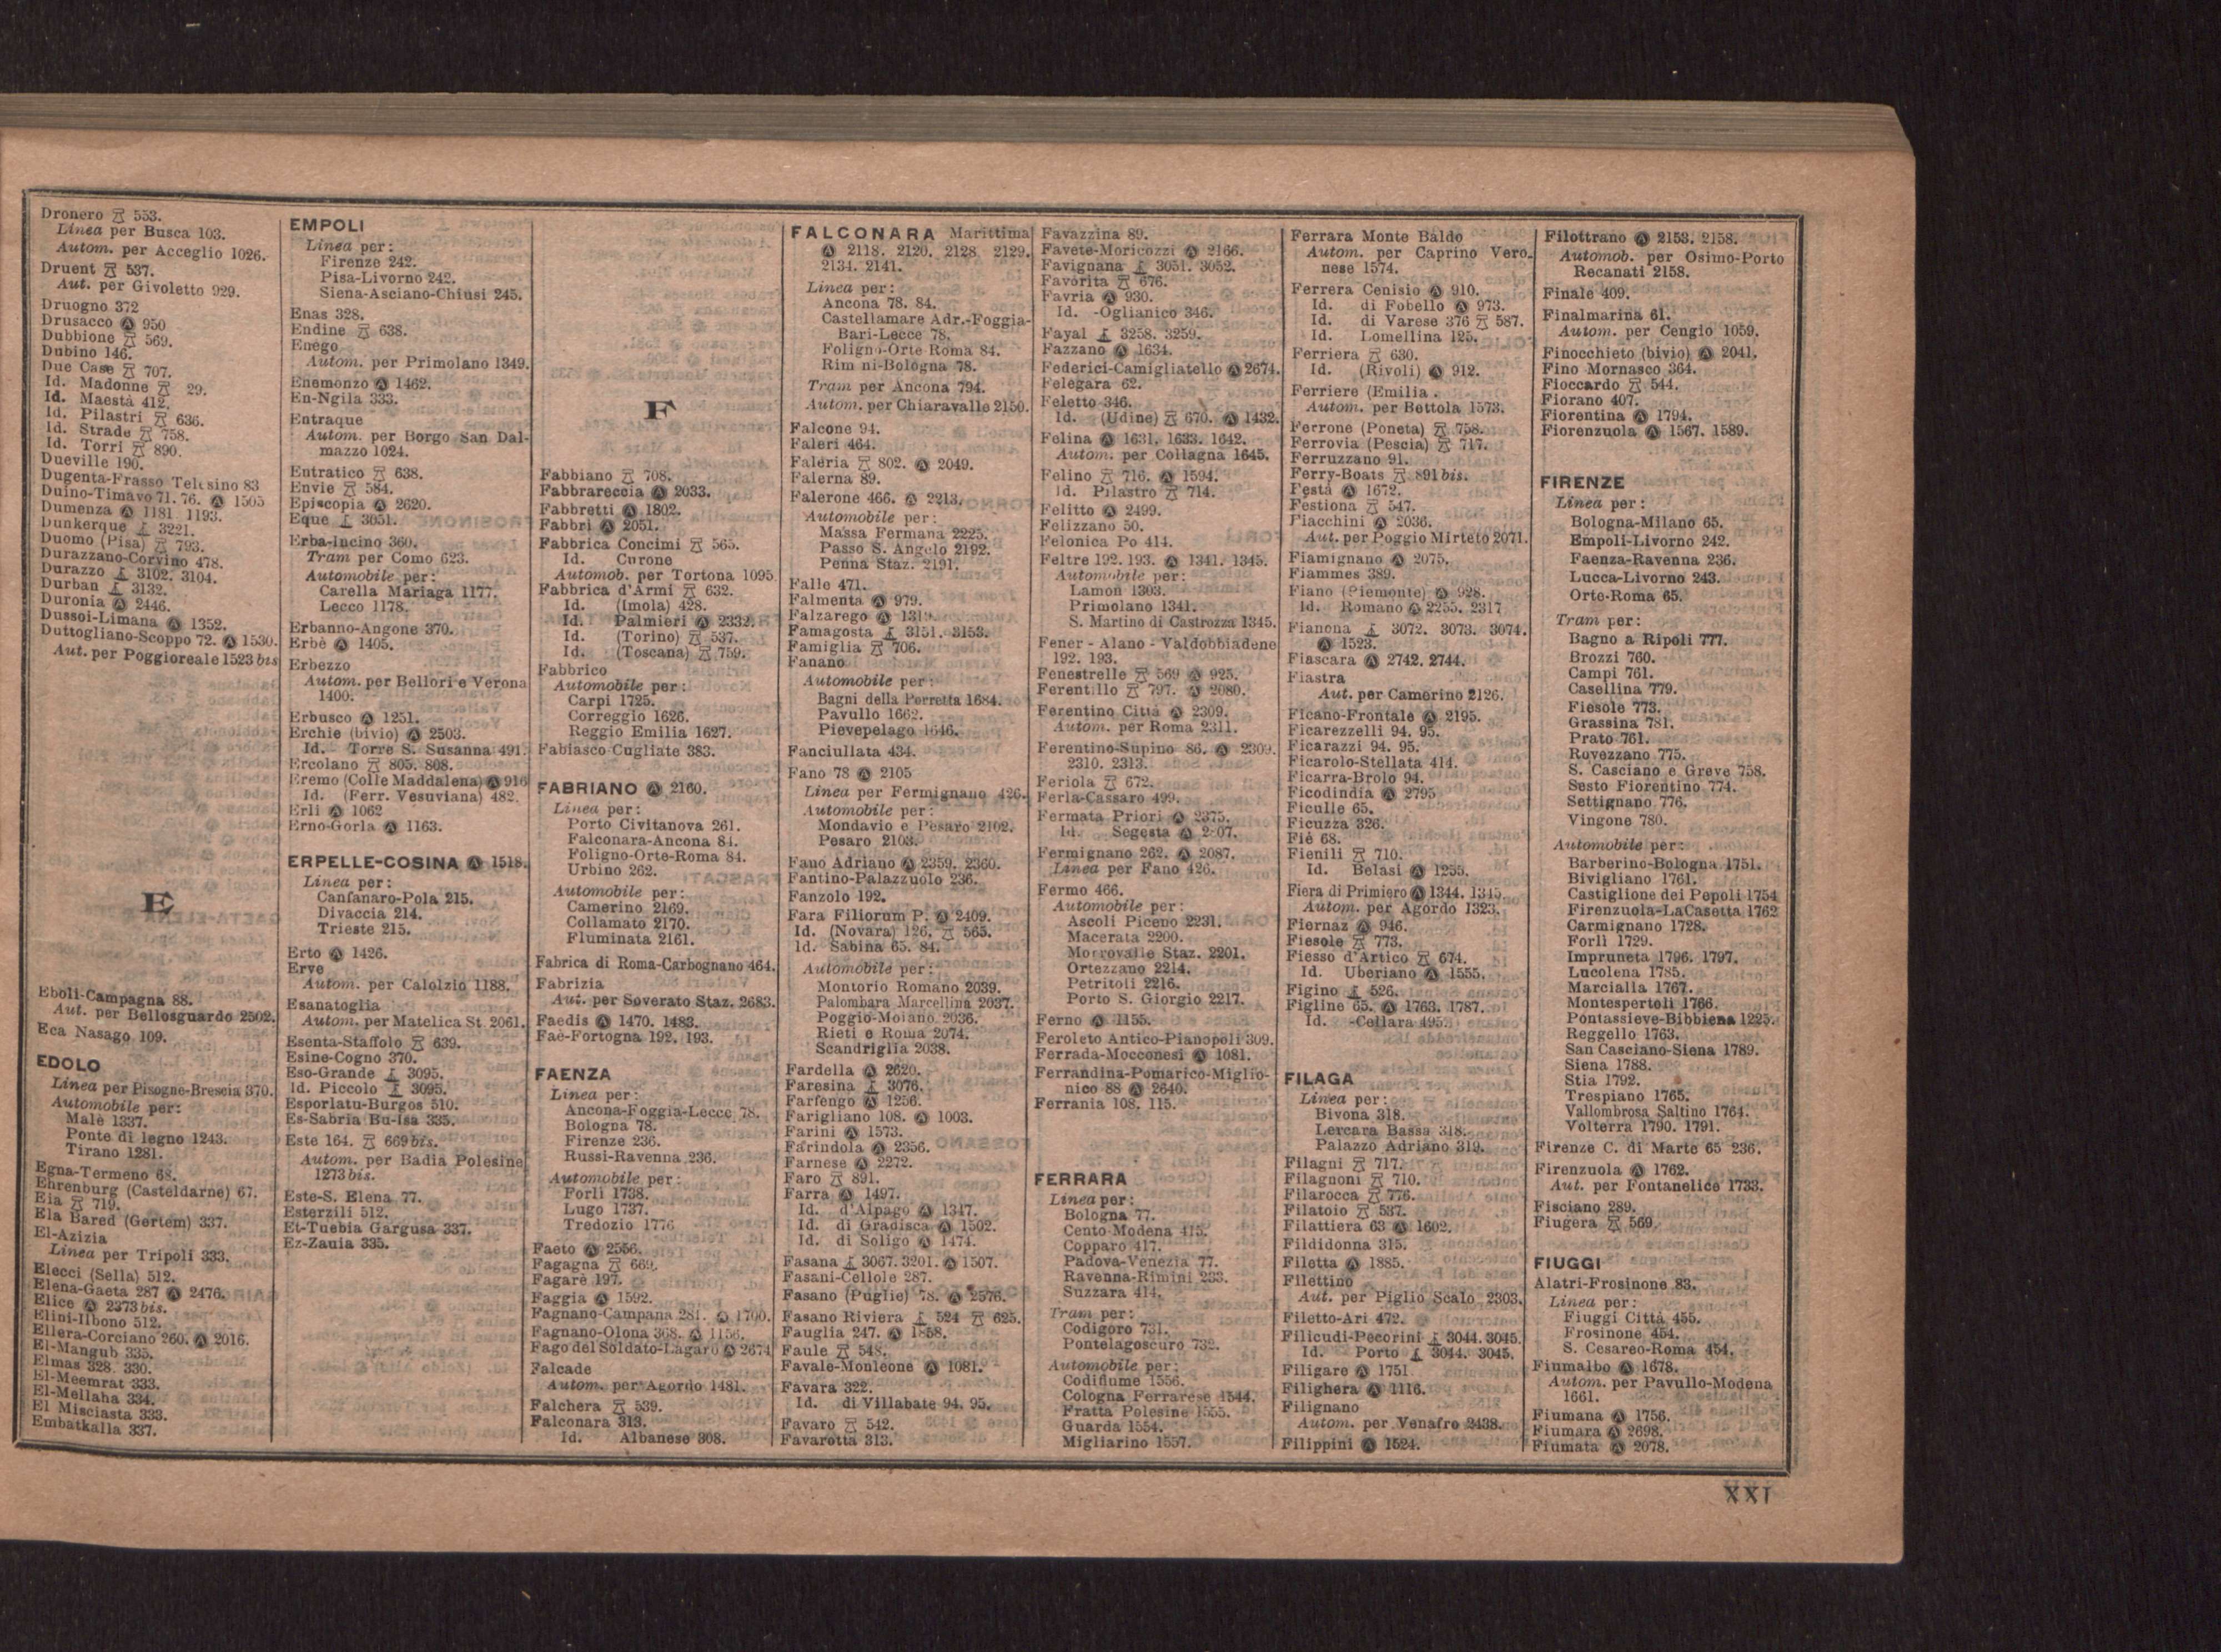 Dronero 553.
Linea per Busca 103.
Autom. per Acceglio 1026.
Druent 537.
Aut. per Givoletto 929.
Druogno 372
Drusacco Ⓐ 950
Dubbione 569.
Dubino 146.
Due Case 707.
Id. Madonne 29.
Id. Maestà 412.
Id. Pilastri 636.
Id. Strade 758.
Id. Torri 890.
Dueville 190.
Dugenta-Frasso Telesino 83
Duino-Timavo 71. 76. Ⓐ 1505
Dumenza Ⓐ 1181. 1193.
Dunkerque 3221.
Duomo (Pisa) 793.
Durazzano-Corvino 478.
Durazzo 3102. 3104.
Durban 3132.
Duronia Ⓐ 2446.
Dussoi-Limana Ⓐ 1352.
Duttogliano-Scoppo 72. Ⓐ 1530.
Aut. per Poggioreale 1523 bis
E
Eboli-Campagna 88.
Aut. per Bellosguardo 2502.
Eca Nasago 109.
EDOLO
Linea per Pisogne-Brescia 370.
Automobile per:
Malè 1337.
Ponte di legno 1243.
Tirano 1281.
Egna-Termeno 68.
Ehrenburg (Casteldarne) 67.
Eia 719.
Ela Bared (Gertem) 337.
El-Azizia
Linea per Tripoli 333.
Elecci (Sella) 512.
Elena-Gaeta 287 Ⓐ 2476.
Elice Ⓐ 2373 bis.
Elini-Ilbono 512.
Ellera-Corciano 260. Ⓐ 2016.
El-Mangub 335.
Elmas 328. 330.
El-Meemrat 333.
El-Mellaha 334.
El Misciasta 333.
Embatkalla 337.
EMPOLI
Linea per:
Firenze 242.
Pisa-Livorno 242.
Siena-Asciano-Chiusi 245.
Enas 328.
Endine 638.
Enego
Autom. per Primolano 1349.
Enemonzo Ⓐ 1462.
En-Ngila 333.
Entraque
Autom. per Borgo San Dal-
mazzo 1024.
Entratico 638.
Envie 584.
Episcopia Ⓐ 2620.
Eque 3051.
Erba-Incino 360.
Tram per Como 623.
Automobile per:
Carella Mariaga 1177.
Lecco 1178.
Erbanno-Angone 370.
Erbè Ⓐ 1405.
Erbezzo
Autom. per Bellori e Verona
1400.
Erbusco Ⓐ 1251.
Erchie (bivio) Ⓐ 2503.
Id. Torre S. Susanna 491.
Ercolano 805. 808.
Eremo (Colle Maddalena) Ⓐ 916
Id. (Ferr. Vesuviana) 482.
Erli Ⓐ 1062
Erno-Gorla Ⓐ 1163.
ERPELLE-COSINA Ⓐ 1518.
Linea per:
Canfanaro-Pola 215.
Divaccia 214.
Trieste 215.
Erto Ⓐ 1426.
Erve
Autom. per Calolzio 1188.
Esanatoglia
Autom. per Matelica St. 2061.
Esenta-Staffolo 639.
Esine-Cogno 370.
Eso-Grande 3095.
Id. Piccolo 3095.
Esporlatu-Burgos 510.
Es-Sabria Bu-Isa 335.
Este 164. 669 bis.
Autom. per Badia Polesine
1273 bis.
Este-S. Elena 77.
Esterzili 512.
Et-Tuebia Gargusa 337.
Ez-Zauia 335.
F
Fabbiano 708.
Fabbrareccia Ⓐ 2033.
Fabbretti Ⓐ 1802.
Fabbri Ⓐ 2051.
Fabbrica Concimi 565.
Id. Curone
Automob. per Tortona 1095
Fabbrica d'Armi 632.
Id. (Imola) 428.
Id. Palmieri Ⓐ 2332.
Id. (Torino) 537.
Id. (Toscana) 759.
Fabbrico
Automobile per:
Carpi 1725.
Correggio 1626.
Reggio Emilia 1627.
Fabiasco Cugliate 383.
FABRIANO Ⓐ 2160.
Linea per:
Porto Civitanova 261.
Falconara-Ancona 84.
Foligno-Orte-Roma 84.
Urbino 262.
Automobile per:
Camerino 2169.
Collamato 2170.
Fluminata 2161.
Fabrica di Roma-Carbognano 464.
Fabrizia
Aut. per Soverato Staz. 2683.
Faedis Ⓐ 1470. 1483.
Faè-Fortogna 192. 193.
FAENZA
Linea per:
Ancona-Foggia-Lecce 78.
Bologna 78.
Firenze 236.
Russi-Ravenna 236.
Automobile per:
Forlì 1738.
Lugo 1737.
Tredozio 1776
Faeto Ⓐ 2556.
Fagagna 669.
Fagarè 197.
Faggia Ⓐ 1592.
Fagnano-Campana 281. Ⓐ 1700.
Fagnano-Olona 368. Ⓐ 1156.
Fago del Soldato-Lagarò Ⓐ 2674
Falcade
Autom. per Agordo 1481.
Falchera 539.
Falconara 313.
Id. Albanese 308.
FALCONARA Marittima
Ⓐ 2118. 2120. 2128. 2129.
2134. 2141.
Linea per:
Ancona 78. 84.
Castellamare Adr.-Foggia-
Bari-Lecce 78.
Foligno-Orte Roma 84.
Rimini-Bologna 78.
Tram per Ancona 794.
Autom. per Chiaravalle 2150.
Falcone 94.
Faleri 464.
Faleria 802. Ⓐ 2049.
Falerna 89.
Falerone 466. Ⓐ 2213.
Automobile per:
Massa Fermana 2225.
Passo S. Angelo 2192.
Penna Staz. 2191.
Falle 471.
Falmenta Ⓐ 979.
Falzarego Ⓐ
Famagosta 3151. 3153.
Famiglia 706.
Fanano
Automobile per:
Bagni della Porretta 1684.
Pavullo 1662.
Pievepelago 1646.
Fanciullata 434.
Fano 78 Ⓐ 2105
Linea per Fermignano 426.
Automobile per:
Mondavio e Pesaro 2102.
Pesaro 2103.
Fano Adriano Ⓐ 2359. 2360.
Fantino-Palazzuolo 236.
Fanzolo 192.
Fara Filiorum P. Ⓐ 2409.
Id. (Novara) 126. 565.
Id. Sabina 65. 84.
Automobile per:
Montorio Romano 2039.
Palombara Marcellina 2037.
Poggio-Moiano 2036.
Rieti e Roma 2074.
Scandriglia 2038.
Fardella Ⓐ 2620.
Faresina 3076.
Farfengo Ⓐ 1256.
Farigliano 108. Ⓐ 1003.
Farini Ⓐ 1573.
Farindola Ⓐ 2356.
Farnese Ⓐ 2272.
Faro 891.
Farra Ⓐ 1497.
Id. d'Alpago Ⓐ 1347.
Id. di Gradisca Ⓐ 1502.
Id. di Soligo Ⓐ 1474.
Fasana 3067. 3201. Ⓐ 1507.
Fasani-Cellole 287.
Fasano (Puglie) 78. Ⓐ 2576.
Fasano Riviera 524 625.
Fauglia 247. Ⓐ 1858.
Faule 548.
Favale-Monleone Ⓐ 1081.
Favara 322.
Id. di Villabate 94. 95.
Favaro 542.
Favarotta 313.
Favazzina 89.
Favete-Moricozzi Ⓐ 2166.
Favignana 3051. 3052.
Favorita 676.
Favria Ⓐ 930.
Id. -Oglianico 346.
Fayal 3258. 3259.
Fazzano Ⓐ 1634.
Federici-Camigliatello Ⓐ 2674.
Felegara 62.
Feletto 346.
Id. (Udine) 670. Ⓐ 1432.
Felina Ⓐ 1631. 1633. 1642.
Autom. per Collagna 1645.
Felino 716. Ⓐ 1594.
Id. Pilastro 714.
Felitto Ⓐ 2499.
Felizzano 50.
Felonica Po 414.
Feltre 192. 193. Ⓐ 1341. 1345.
Automobile per:
Lamon 1303.
Primolano 1341.
S. Martino di Castrozza 1345.
Fener - Alano - Valdobbiadene
192. 193.
Fenestrelle 569 Ⓐ 925.
Ferentillo 797. Ⓐ 2080.
Ferentino Città Ⓐ 2309.
Autom. per Roma 2311.
Ferentino-Supino 86. Ⓐ 2309.
2310. 2313.
Feriola 672.
Ferla-Cassaro 499.
Fermata Priori Ⓐ 2375.
Id. Segesta Ⓐ
Fermignano 262. Ⓐ 2087.
Linea per Fano 426.
Fermo 466.
Automobile per:
Ascoli Piceno 2231.
Macerata 2200.
Morrovalle Staz. 2201.
Ortezzano 2214.
Petritoli 2216.
Porto S. Giorgio 2217.
Ferno Ⓐ 1155.
Feroleto Antico-Pianopoli 309.
Ferrada-Mocconesi Ⓐ 1081.
Ferrandina-Pomarico-Miglio-
nico 88 Ⓐ 2640.
Ferrania 108. 115.
FERRARA
Linea per:
Bologna 77.
Cento-Modena 415.
Copparo 417.
Padova-Venezia 77.
Ravenna-Rimini 233.
Suzzara 414.
Tram per:
Codigoro 731.
Pontelagoscuro 732.
Automobile per:
Codifiume 1556.
Cologna Ferrarese 1544.
Fratta Polesine 1555.
Guarda 1554.
Migliarino 1557.
Ferrara Monte Baldo
Autom. per Caprino Vero-
nese 1574.
Ferrera Cenisio Ⓐ 910.
Id. di Fobello Ⓐ 973.
Id. di Varese 376 587.
Id. Lomellina 125.
Ferriera 630.
Id. (Rivoli) Ⓐ 912.
Ferriere (Emilia.
Autom. per Bettola 1573.
Ferrone (Poneta) 758.
Ferrovia (Pescia) 717.
Ferruzzano 91.
Ferry-Boats 891 bis.
Festà Ⓐ 1672.
Festiona 547.
Fiacchini Ⓐ 2036.
Aut. per Poggio Mirteto 2071.
Fiamignano Ⓐ 2075.
Fiammes 389.
Fiano (Piemonte) Ⓐ 928.
Id. Romano Ⓐ 2255. 2317
Fianona 3072. 3073. 3074.
Ⓐ 1523.
Fiascara Ⓐ 2742. 2744.
Fiastra
Aut. per Camerino 2126.
Ficano-Frontale Ⓐ 2195.
Ficarezzelli 94. 95.
Ficarazzi 94. 95.
Ficarolo-Stellata 414.
Ficarra-Brolo 94.
Ficodindia Ⓐ 2795
Ficulle 65.
Ficuzza 326.
Fiè 68.
Fienili 710.
Id. Belasi Ⓐ 1255.
Fiera di Primiero Ⓐ 1344. 1345.
Autom. per Agordo 1323.
Fiernaz Ⓐ 946.
Fiesole 773.
Fiesso d'Artico 674.
Id. Uberiano Ⓐ 1555.
Figino 526.
Figline 65. Ⓐ 1763. 1787.
Id. -Cellara 495.
FILAGA
Linea per:
Bivona 318.
Lercara Bassa 318.
Palazzo Adriano 319.
Filagni 717.
Filagnoni 710.
Filarocca 776.
Filatoio 537.
Filattiera 63 Ⓐ 1602.
Fildidonna 315.
Filetta Ⓐ 1885.
Filettino
Aut. per Piglio Scalo 2303.
Filetto-Ari 472.
Filicudi-Pecorini 3044. 3045.
Id. Porto 3044. 3045.
Filigare Ⓐ 1751
Filighera Ⓐ 1116.
Filignano
Autom. per Venafro 2438.
Filippini Ⓐ 1524.
Filottrano Ⓐ 2153. 2158.
Automob. per Osimo-Porto
Recanati 2158.
Finale 409.
Finalmarina 61.
Autom. per Cengio 1059.
Finocchieto (bivio) Ⓐ 2041.
Fino Mornasco 364.
Fioccardo 544.
Fiorano 407.
Fiorentina Ⓐ 1794.
Fiorenzuola Ⓐ 1567. 1589.
FIRENZE
Linea per:
Bologna-Milano 65.
Empoli-Livorno 242.
Faenza-Ravenna 236.
Lucca-Livorno 243.
Orte-Roma 65.
Tram per:
Bagno a Ripoli 777.
Brozzi 760.
Campi 761.
Casellina 779.
Fiesole 773.
Grassina 781.
Prato 761.
Rovezzano 775.
S. Casciano e Greve 758.
Sesto Fiorentino 774.
Settignano 776.
Vingone 780.
Automobile per:
Barberino-Bologna 1751.
Bivigliano 1761.
Castiglione dei Pepoli 1754
Firenzuola-LaCasetta 1762
Carmignano 1728.
Forlì 1729.
Impruneta 1796. 1797.
Lucolena 1785.
Marcialla 1767.
Montespertoli 1766.
Pontassieve-Bibbiena 1225.
Reggello 1763.
San Casciano-Siena 1789.
Siena 1788.
Stia 1792.
Trespiano 1765.
Vallombrosa Saltino 1764.
Volterra 1790. 1791.
Firenze C. di Marte 65 236.
Firenzuola Ⓐ 1762.
Aut. per Fontanelice 1733.
Fisciano 289.
Fiugera 569.
FIUGGI
Alatri-Frosinone 83.
Linea per:
Fiuggi Città 455.
Frosinone 454.
S. Cesareo-Roma 454.
Fiumalbo Ⓐ 1678.
Autom. per Pavullo-Modena
1661.
Fiumana Ⓐ 1756.
Fiumara Ⓐ 2698.
Fiumata Ⓐ 2078.
XXI